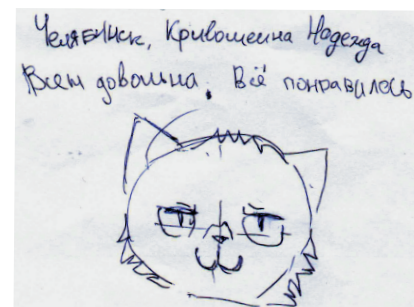 Челябинск, Кривошеина Надежда
Всем довольна. Всё понравилось